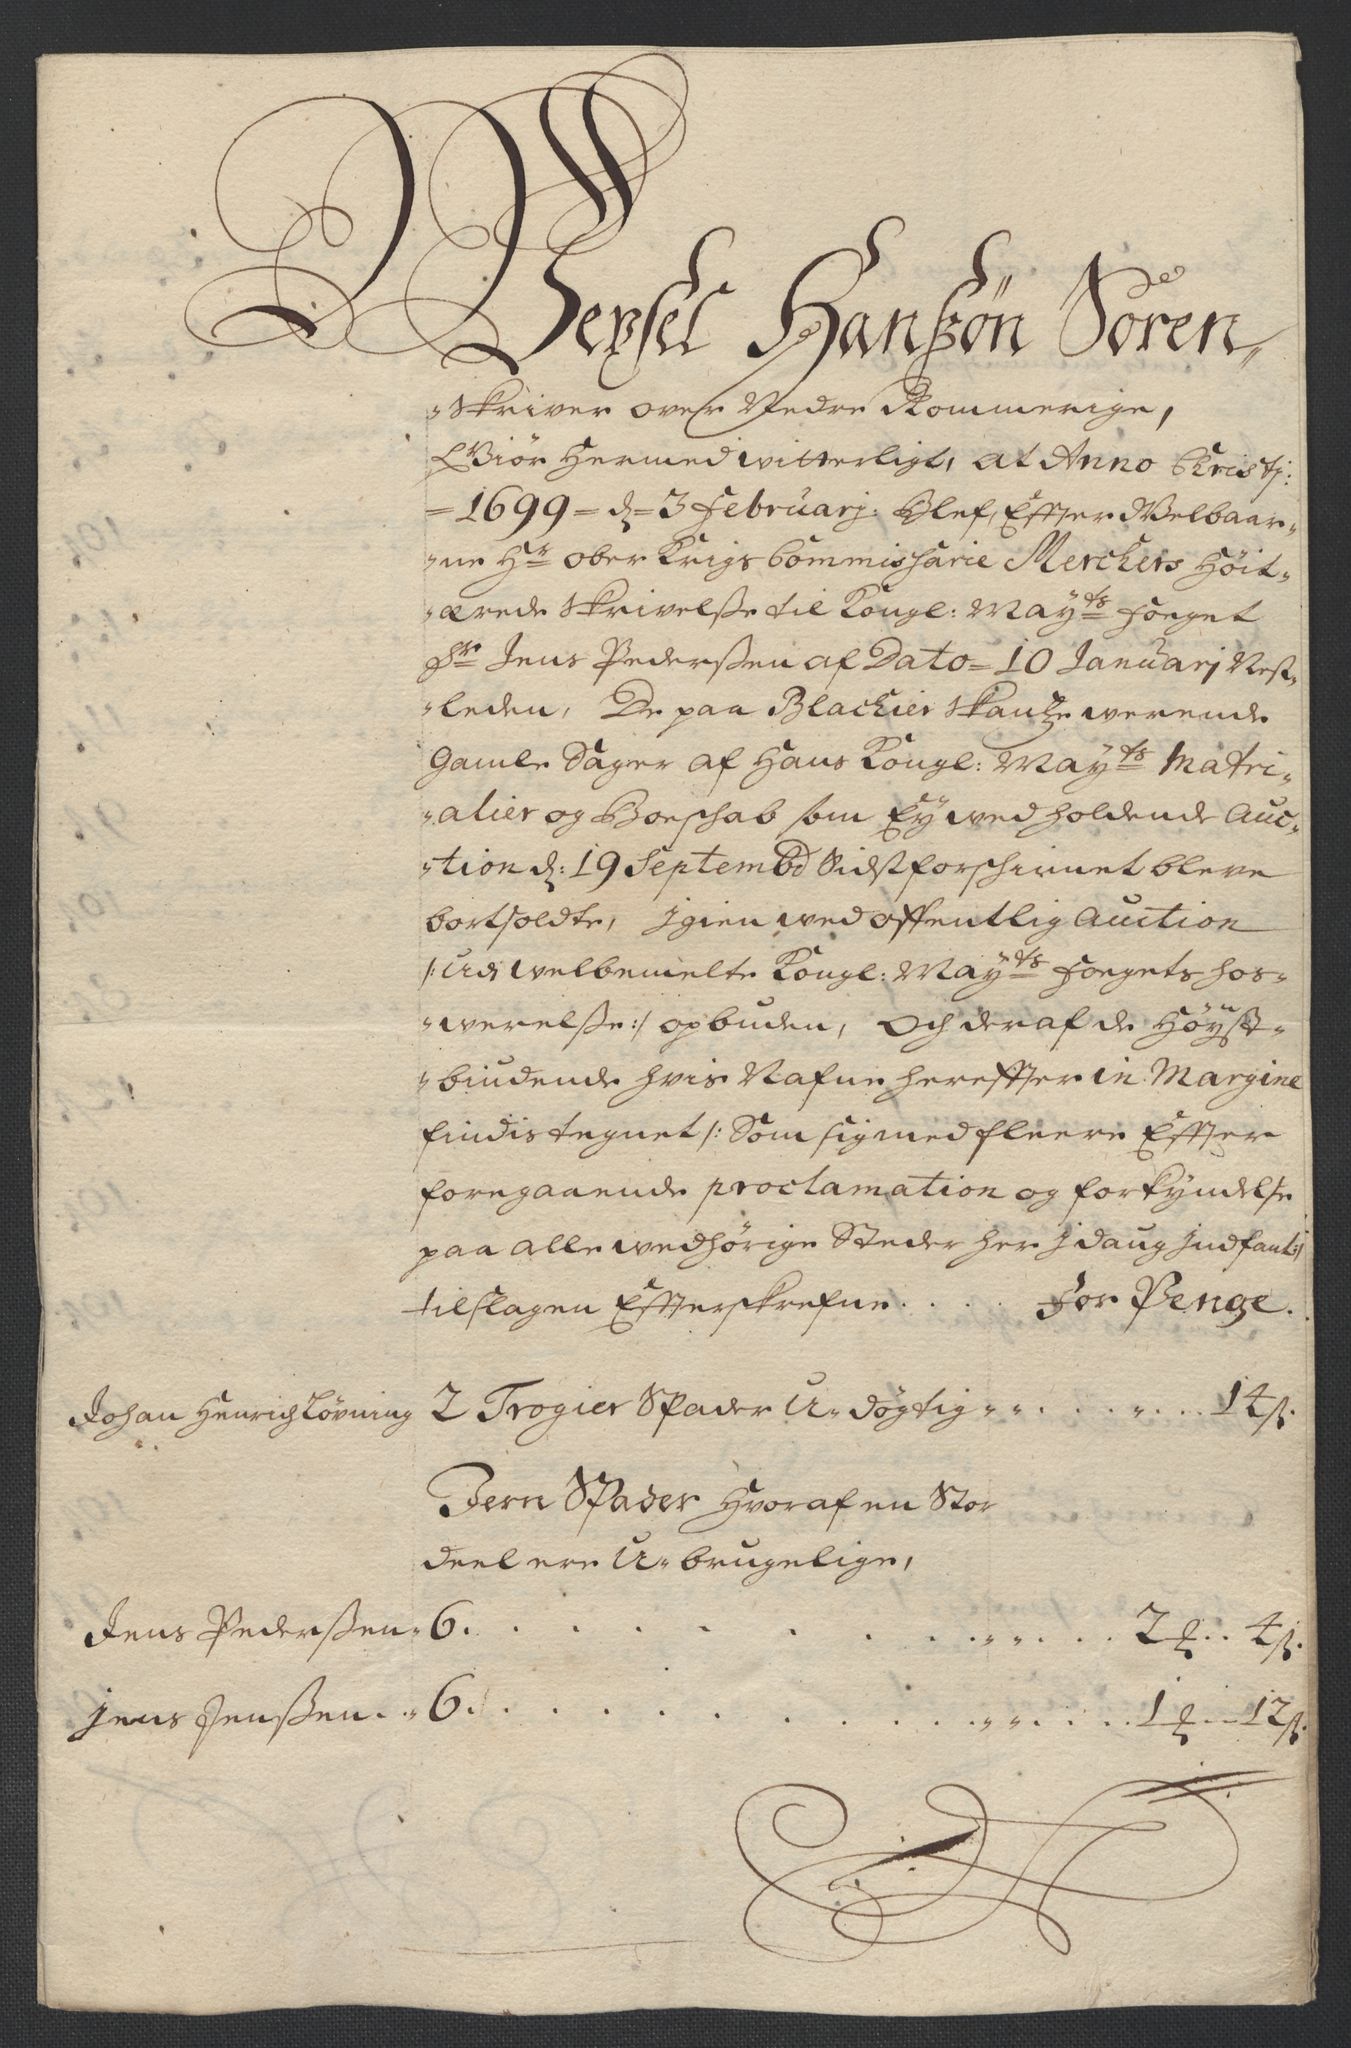 Wexsel Hanßøn Soren-
-skriver over Nedre Rommerige,
Giör hermed witterligt, at Anno Christj:
=1699= d= 3 Februarj: Blef, Effter Welbaar-
-ne Hr ober Krigs Commissarie Merckers Höit-
-ærede Skrivelße til Kongl: Mayts Foeget
Hr Jens Pederßen af Dato= 10 Januarj Nest-
-leden, De paa Blackier Skantze werende
Gamle Sager af Hans Kongl: Mayts Matri-
-alier og Boeschab som Ey wed holdende Auc-
-tion d: 19 Septembd Sidst forschinnet bleve
bortsoldte, Igien wed offentlig Auction
/: Udj welbemelte Kongl: Mayts Foegets hos-
-werelße :/ opbuden, Och deraf de Höyst-
-biudende hvis Nafne hereffter in Margine
findis tegnet /: Som sig med fleere Effter
foregaaende proclamation og forkyndelse
paa alle wedhörige Steder her Idaug Indfant :/
tilslagen Effterskrefne . . . . For Penge.
Johan Henrich Løvning 2 Trogier Spader U-dögtig . . . . 14 ß.
Jern Spader Hvoraf en Stor
deel ere U-brugelige,
Jens Pederßen 6. . . . . . . . 2 d . . 4 ß.
Jens Jenßen . . 6. . . . . . . . 1 d . . 12 ß.